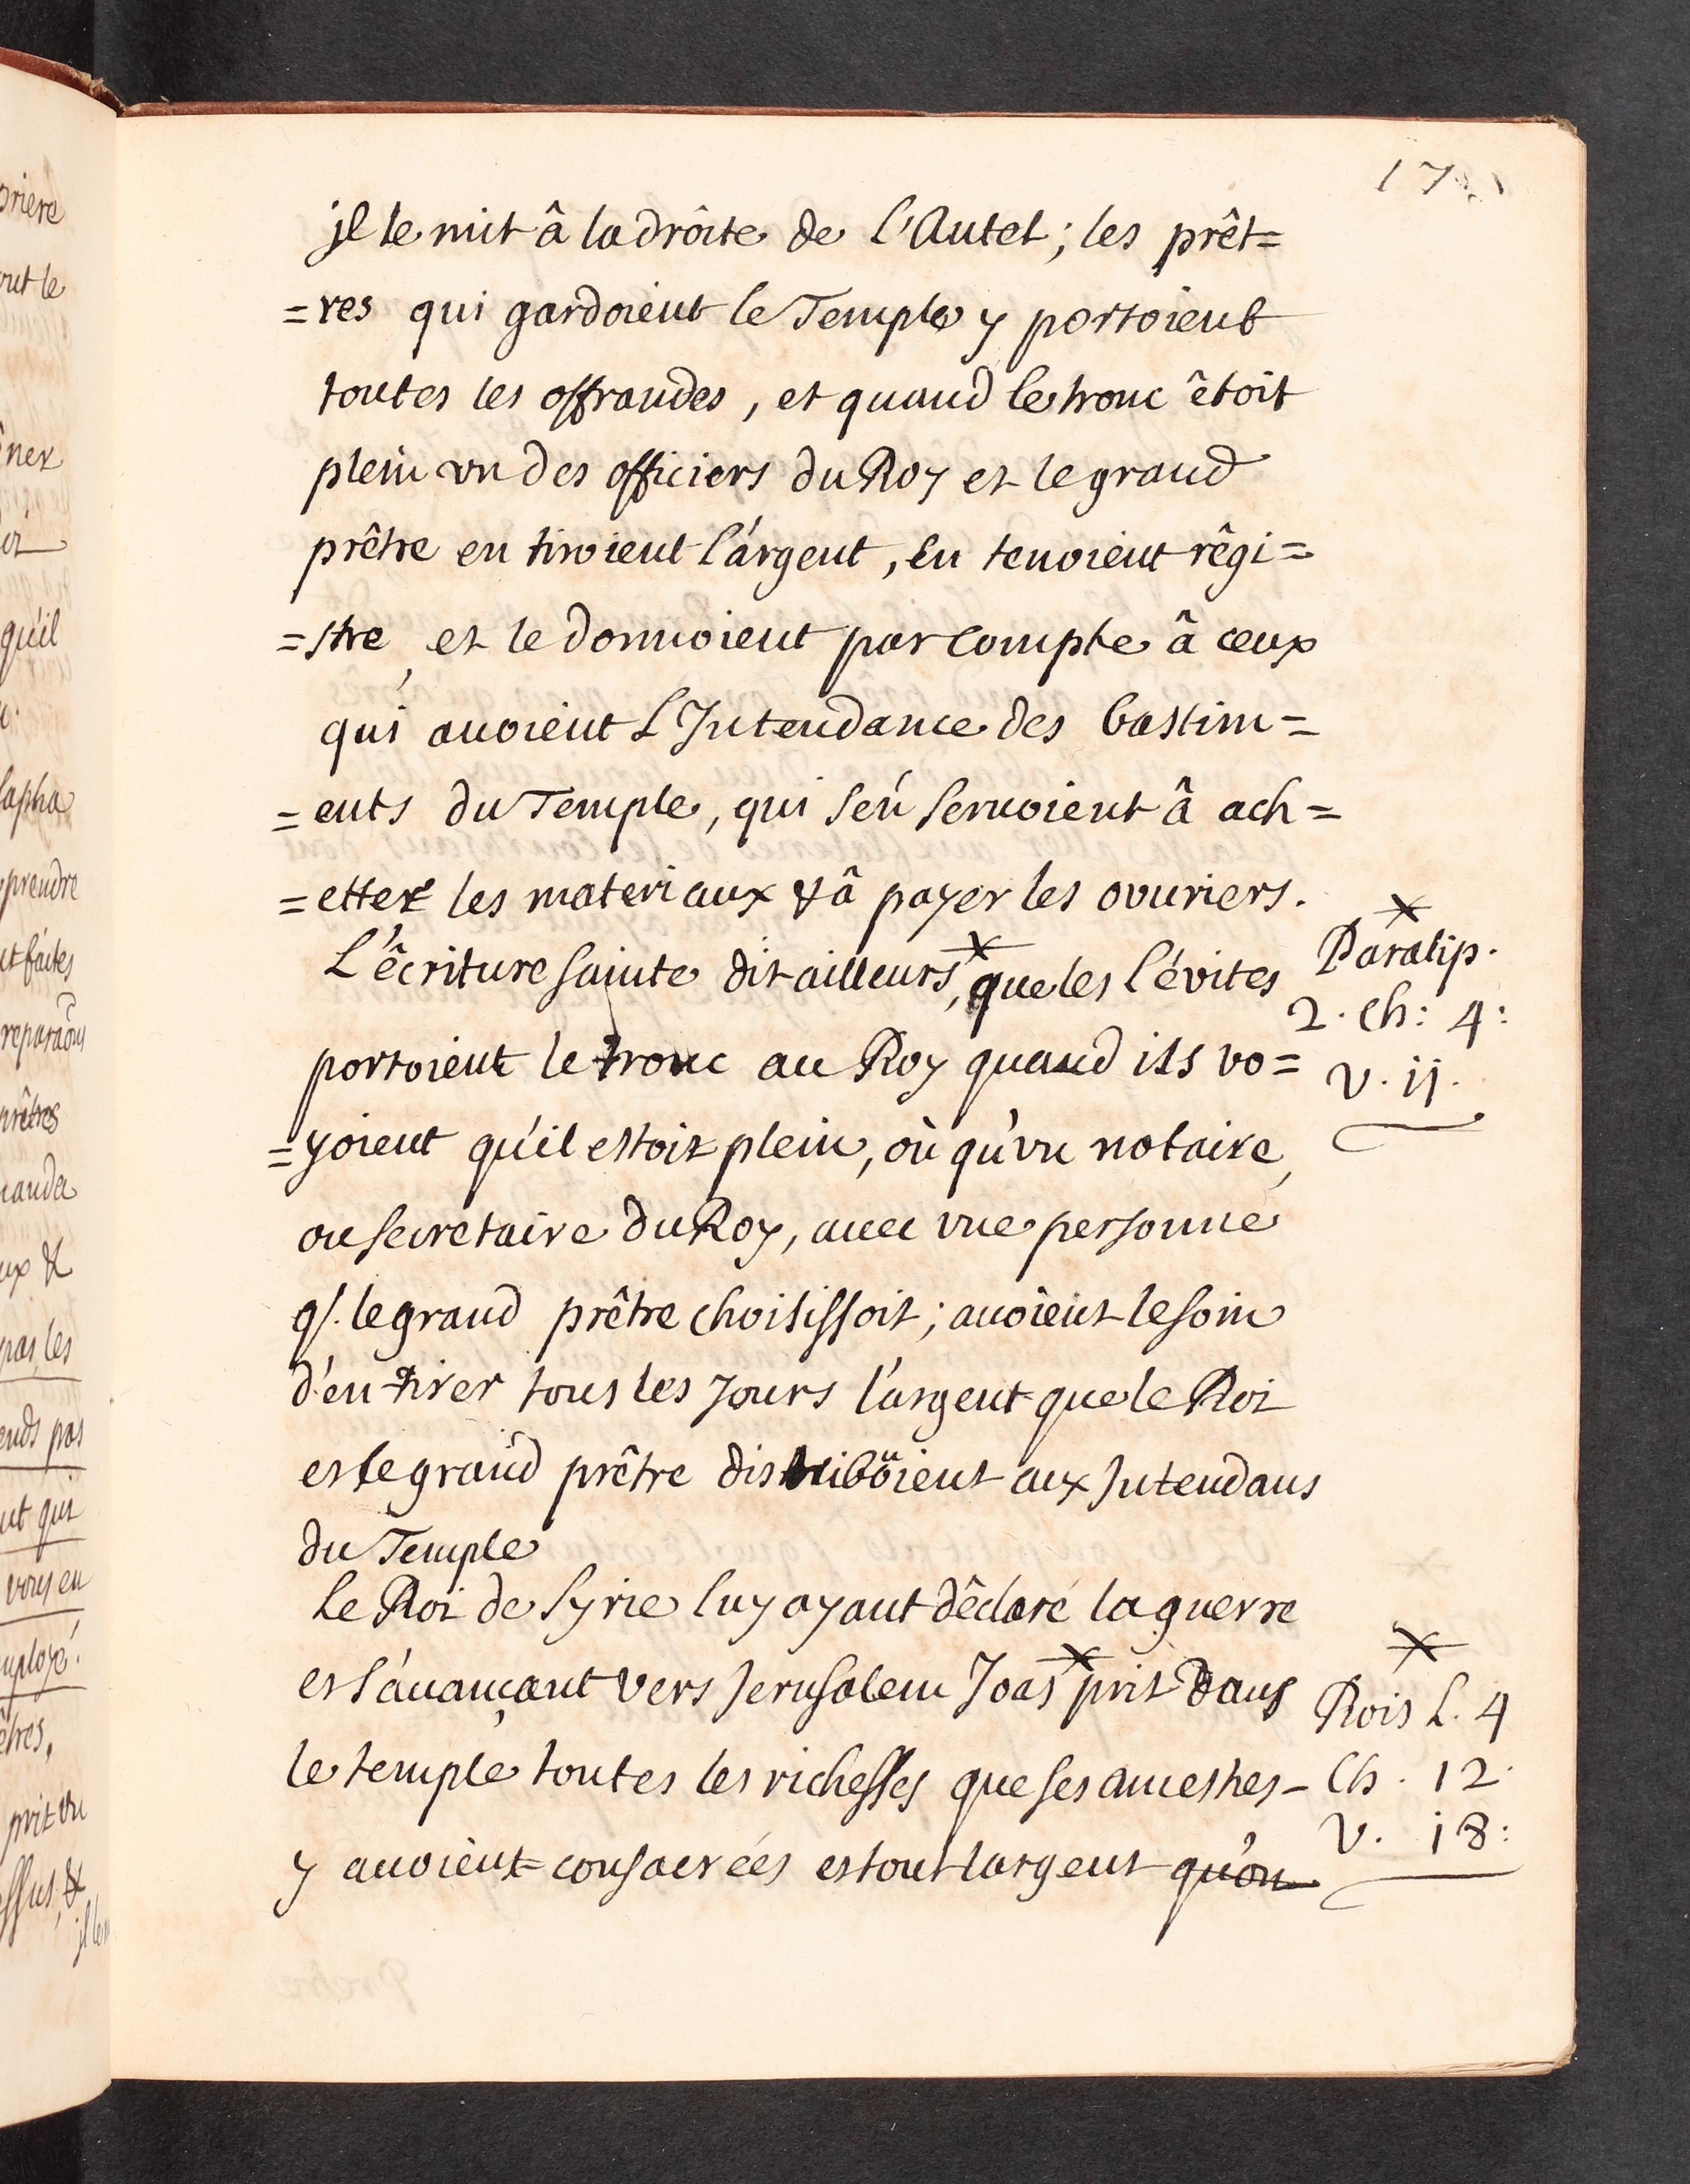 17
jl le mit â la drôite de l'Autel; les prêt=
=res qui gardoient le Temple y portoient
toutes les offrandes, et quand le tronc êtoit
plein vn des officiers du Roy et le grand
prêtre en tiroient l'árgent, en tenoient rêgi=
=stre, et le donnoient par compte â ceux
qui auoient L'Intendance des bastim=
=ents du Temple, qui s'eń seruoient â ach=
=etter les materiaux & â payer les ovuriers.
L'êcriture sainte dit ailleurs, que les lévites
portoient le tronc au Roy quand ils vo=
=yoient qu'il estoit plein, où qu'vn notaire,
ou secretaire du Roy, auec vne personne
q/. le grand prêtre choisissoit; auoient le soin
d'en tirer tous les jours l'argent que le Roi
et le grand prêtre distribüoient aux Intendans
du Temple
Paralip.
2. Ch: 4:
v. ij.
Le Roi de Syrie luy ayant dêclaré la guerre
et s'auançant vers Jerusalem Joas prit dans
le temple toutes les richesses que ses ancestres
y auoient consacrées et tout l'argent qu'on
Rois L. 4
Ch. 12.
v. 18: